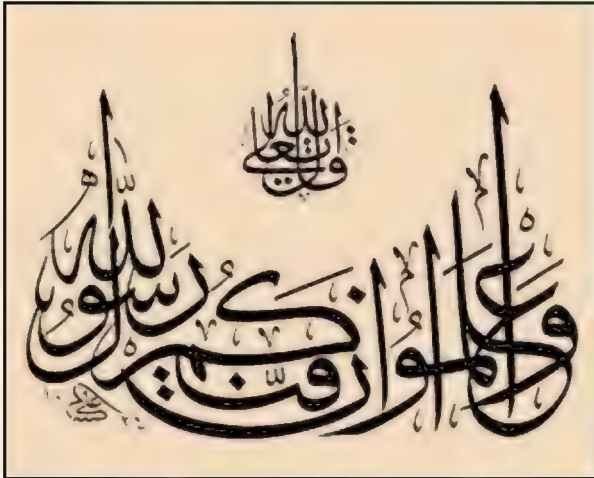 قال الله تعالى
واعلموا أن فيكم رسول الله